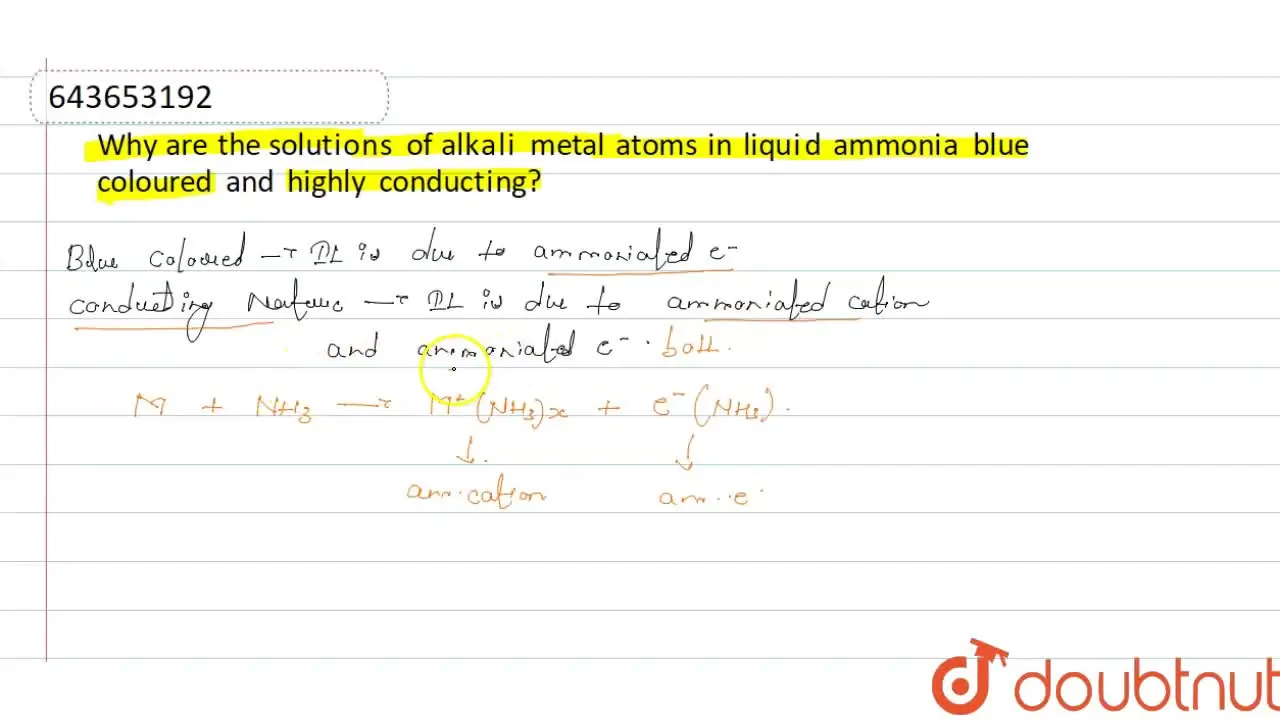 643653192
Why are the solutions of alkali metal atoms in liquid ammonia blue
coloured and highly conducting?
Blue coloured → It is due to ammoniated e⁻
conducting Nature → It is due to ammoniated cation
and ammoniated e⁻. both.
M + NH₃ → M⁺(NH₃)x + e⁻(NH₃).
↓ ↓
am. cation am. e⁻
doubtnut